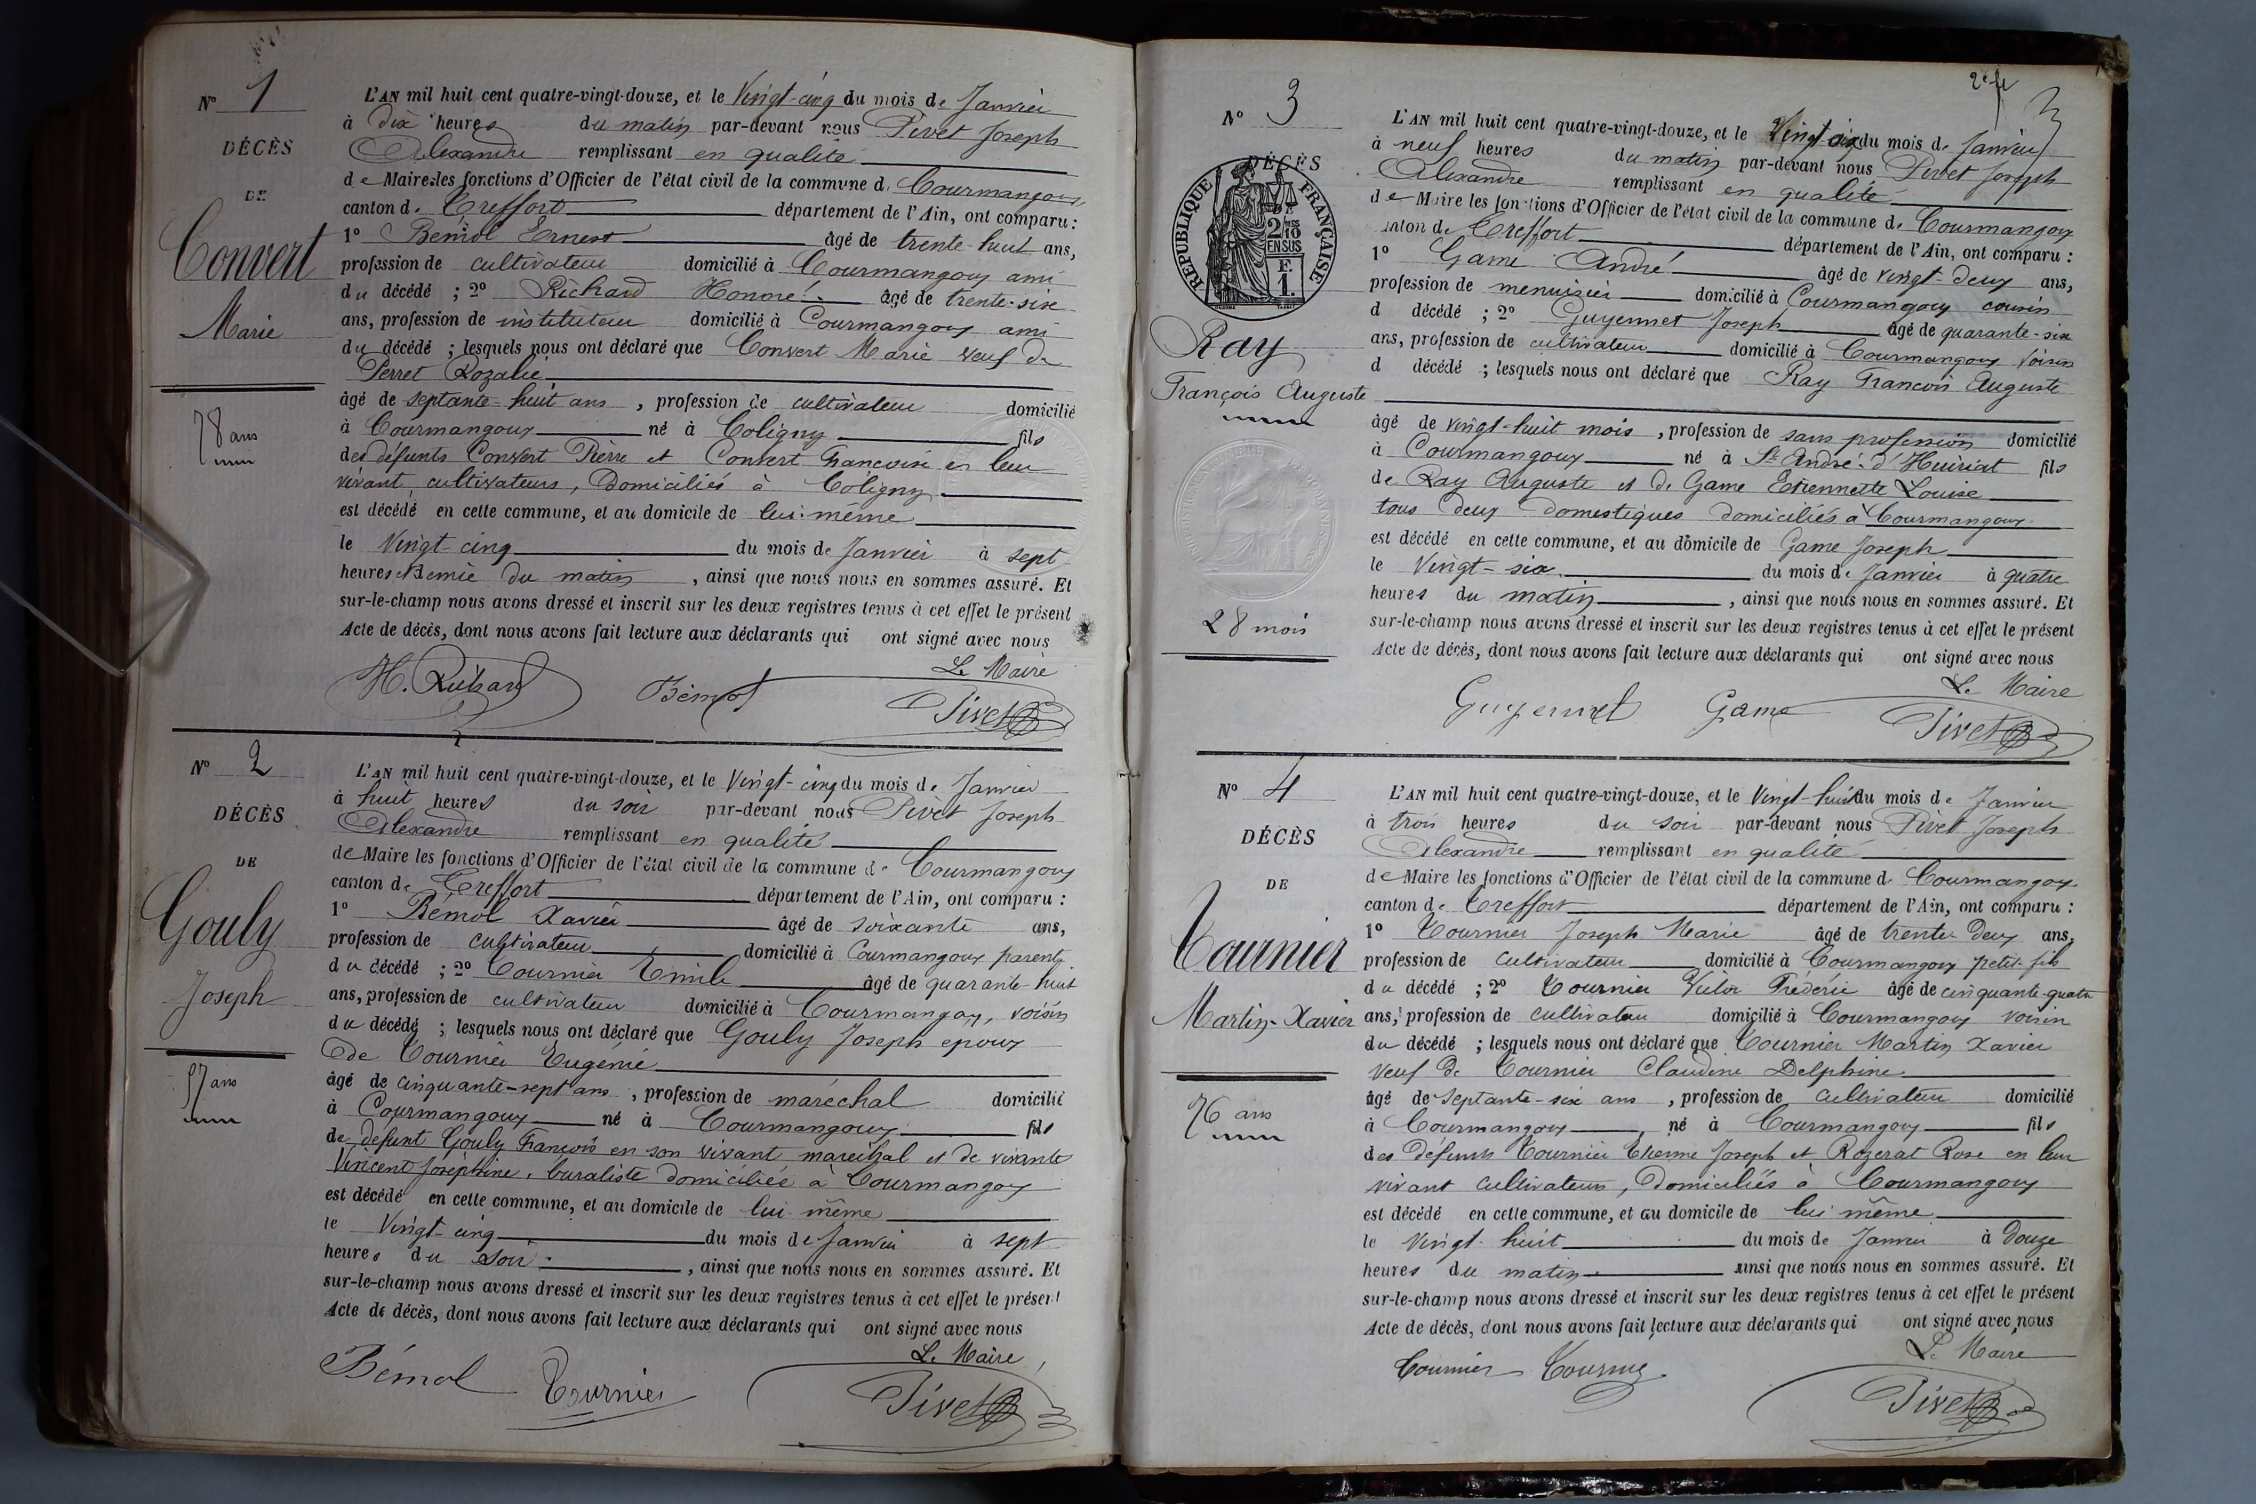 N° 1
DÉCÈS
DE
Convert
Marie
78 ans
L'AN mil huit cent quatre-vingt-douze, et le Vingt-cinq du mois de Janvier
à dix heures du matin par-devant nous Pivet Joseph
Alexandre remplissant en qualité
de Maire les fonctions d'Officier de l'état civil de la commune de Courmangoux,
canton de Treffort département de l'Ain, ont comparu :
1° Bémol Ernest âgé de trente-huit ans,
profession de cultivateur domicilié à Courmangoux ami
du décédé ; 2° Richard Honoré âgé de trente-six
ans, profession de instituteur domicilié à Courmangoux ami
du décédé ; lesquels nous ont déclaré que Convert Marie veuf de
Perret Rozalie
âgé de septante-huit ans, profession de cultivateur domicilié
à Courmangoux né à Coligny fils
des défunts Convert Pierre et Convert Françoise en leur
vivant cultivateurs, Domiciliés à Coligny
est décédé en cette commune, et au domicile de lui-même
le Vingt-cinq du mois de Janvier à sept
heures et demie du matin, ainsi que nous nous en sommes assuré. Et
sur-le-champ nous avons dressé et inscrit sur les deux registres tenus à cet effet le présent
Acte de décès, dont nous avons fait lecture aux déclarants qui ont signé avec nous
Le Maire
H. Richard Bémol Pivet
N° 2
DÉCÈS
DE
Gouly
Joseph
57 ans
L'AN mil huit cent quatre-vingt-douze, et le Vingt-cinq du mois de Janvier
à huit heures du soir par-devant nous Pivet Joseph
Alexandre remplissant en qualité
de Maire les fonctions d'Officier de l'état civil de la commune de Courmangoux
canton de Treffort département de l'Ain, ont comparu :
1° Bémol Xavier âgé de soixante ans,
profession de cultivateur domicilié à Courmangoux parent
du décédé ; 2° Tournier Emile âgé de quarante-huit
ans, profession de cultivateur domicilié à Courmangoux, voisin
du décédé ; lesquels nous ont déclaré que Gouly Joseph époux
de Tournier Eugénie
âgé de cinquante-sept ans, profession de maréchal domicilié
à Courmangoux né à Courmangoux fils
de défunt Gouly François en son vivant maréchal et de vivante
Vincent Joséphine, buraliste domiciliée à Courmangoux
est décédé en cette commune, et au domicile de lui-même
le Vingt-cinq du mois de Janvier à sept
heures du soir, ainsi que nous nous en sommes assuré. Et
sur-le-champ nous avons dressé et inscrit sur les deux registres tenus à cet effet le présent
Acte de décès, dont nous avons fait lecture aux déclarants qui ont signé avec nous
Le Maire
Bémol Tournier Pivet
N° 3
DÉCÈS
RÉPUBLIQUE FRANÇAISE
2/10 EN SUS
F. 1.
Ray
François Auguste
28 mois
L'AN mil huit cent quatre-vingt-douze, et le Vingt-six du mois de Janvier
à neuf heures du matin par-devant nous Pivet Joseph
Alexandre remplissant en qualité
de Maire les fonctions d'Officier de l'état civil de la commune de Courmangoux
canton de Treffort département de l'Ain, ont comparu :
1° Game André âgé de vingt-deux ans,
profession de menuisier domicilié à Courmangoux cousin
d décédé ; 2° Guyennet Joseph âgé de quarante-six
ans, profession de cultivateur domicilié à Courmangoux voisin
d décédé ; lesquels nous ont déclaré que Ray François Auguste
âgé de vingt-huit mois, profession de sans profession domicilié
à Courmangoux né à St André-d'Huiriat fils
de Ray Auguste et de Game Etiennette Louise
tous deux domestiques domiciliés à Courmangoux
est décédé en cette commune, et au domicile de Game Joseph
le Vingt-six du mois de Janvier à quatre
heures du matin, ainsi que nous nous en sommes assuré. Et
sur-le-champ nous avons dressé et inscrit sur les deux registres tenus à cet effet le présent
Acte de décès, dont nous avons fait lecture aux déclarants qui ont signé avec nous
Le Maire
Guyennet Game Pivet
N° 4
DÉCÈS
DE
Tournier
Martin-Xavier
76 ans
L'AN mil huit cent quatre-vingt-douze, et le Vingt-huit du mois de Janvier
à trois heures du soir par-devant nous Pivet Joseph
Alexandre remplissant en qualité
de Maire les fonctions d'Officier de l'état civil de la commune d Courmangoux
canton de Treffort département de l'Ain, ont comparu :
1° Tournier Joseph Marie âgé de trente deux ans,
profession de cultivateur domicilié à Courmangoux petit-fils
du décédé ; 2° Tournier Victor Frédéric âgé de cinquante-quatre
ans, profession de cultivateur domicilié à Courmangoux voisin
du décédé ; lesquels nous ont déclaré que Tournier Martin Xavier
veuf de Tournier Claudine Delphine
âgé de septante-six ans, profession de cultivateur domicilié
à Courmangoux, né à Courmangoux fils
des défunts Tournier Etienne Joseph et Rozerat Rose en leur
vivant cultivateurs, Domiciliés à Courmangoux
est décédé en cette commune, et au domicile de lui même
le Vingt-huit du mois de Janvier à Douze
heures du matin ainsi que nous nous en sommes assuré. Et
sur-le-champ nous avons dressé et inscrit sur les deux registres tenus à cet effet le présent
Acte de décès, dont nous avons fait lecture aux déclarants qui ont signé avec nous
Le Maire
Tournier Tournier Pivet